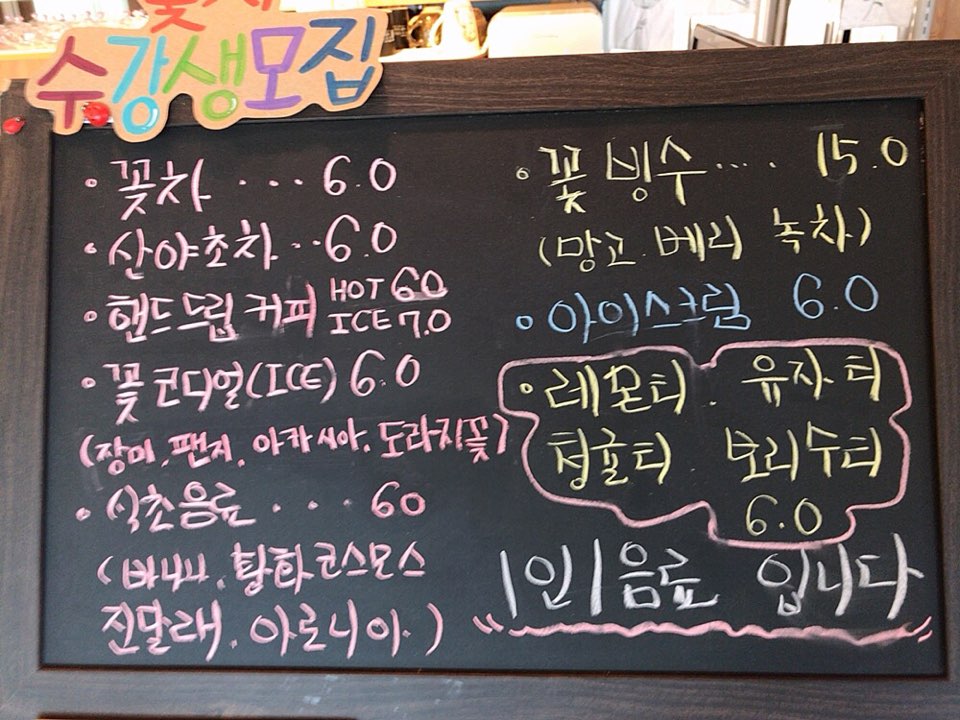 꽃차
수강생모집
· 꽃차 ... 6.0
· 산야초차 .. 6.0
· 핸드드립 커피 HOT 6.0
ICE 7.0
· 꽃코디얼(ICE) 6.0
(장미.팬지.아카시아.도라지꽃)
· 식초음료 ... 60
(바나나.황화코스모스
진달래.아로니아.)
· 꽃빙수 .... 15.0
(망고.베리 녹차)
· 아이스크림 6.0
· 레몬티. 유자티
청귤티 보리수티
6.0
1인1음료 입니다